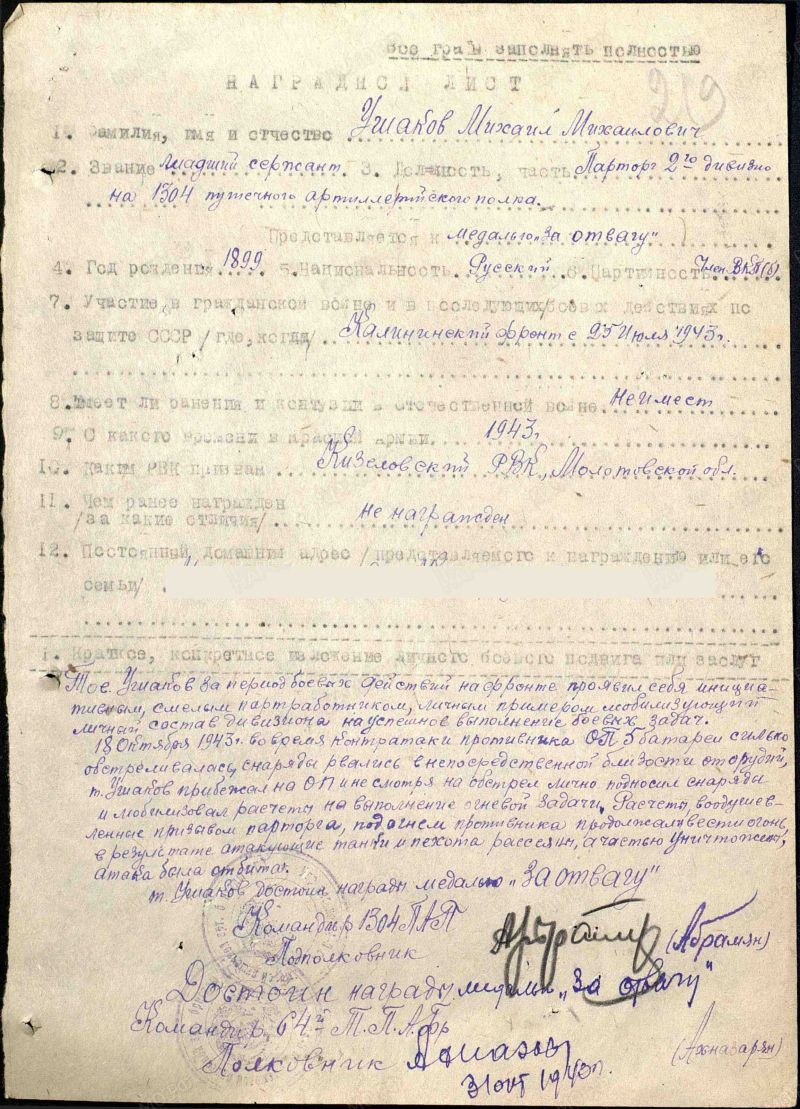 Все графы заполнять полностью
НАГРАДНОЙ ЛИСТ
219
1. Фамилия, имя и отчество Ушаков Михаил Михаилович
2. Звание младший сержант 3. Должность, часть Парторг 2го дивизио
на 1304 пушечного артиллерийского полка.
Представляется к медалью „за отвагу"
4. Год рождения 1899 5. Национальность Русский 6. Партийность Член ВКП(б)
7. Участие в гражданской войне и в последующих боевых действиях по
защите СССР /где, когда/ Калининский фронт с 25 Июля 1943г.
8. Имеет ли ранения и контузии в отечественной войне Не имеет
9. С какого времени в Красной Армии С 1943г.
10. Каким РВК призван Кизеловский РВК, Молотовской обл.
11. Чем ранее награжден
/за какие отличия/ не награжден
12. Постоянный домашний адрес /представляемого к награждению или его
семьи/
1. Краткое, конкретное изложение личного боевого подвига или заслуг
Тов. Ушаков за период боевых действий на фронте проявил себя инициа-
тивным, смелым партработником, личным примером мобилизующий
личный состав дивизиона на успешное выполнение боевых задач.
18 Октября 1943г. во время контратаки противника ОП 5 батареи сильно
обстреливалась, снаряды рвались в непосредственной близости от орудий,
т. Ушаков прибежал на ОП и не смотря на обстрел лично подносил снаряды
и мобилизовал расчеты на выполнение огневой задачи. Расчеты, воодушев-
ленные призывом парторга, под огнем противника продолжали вести огонь,
в результате атакующие танки и пехота рассеян, а частью уничтожены,
атака была отбита.
т. Ушаков достоин награды медалью „За отвагу"
Командир 1304 ПАП
Подполковник (Абрамян)
Достоин награды медалью „За отвагу"
Командир 64й Т.П.А.Бр
Полковник (Ахназарян)
31 окт 1943г.